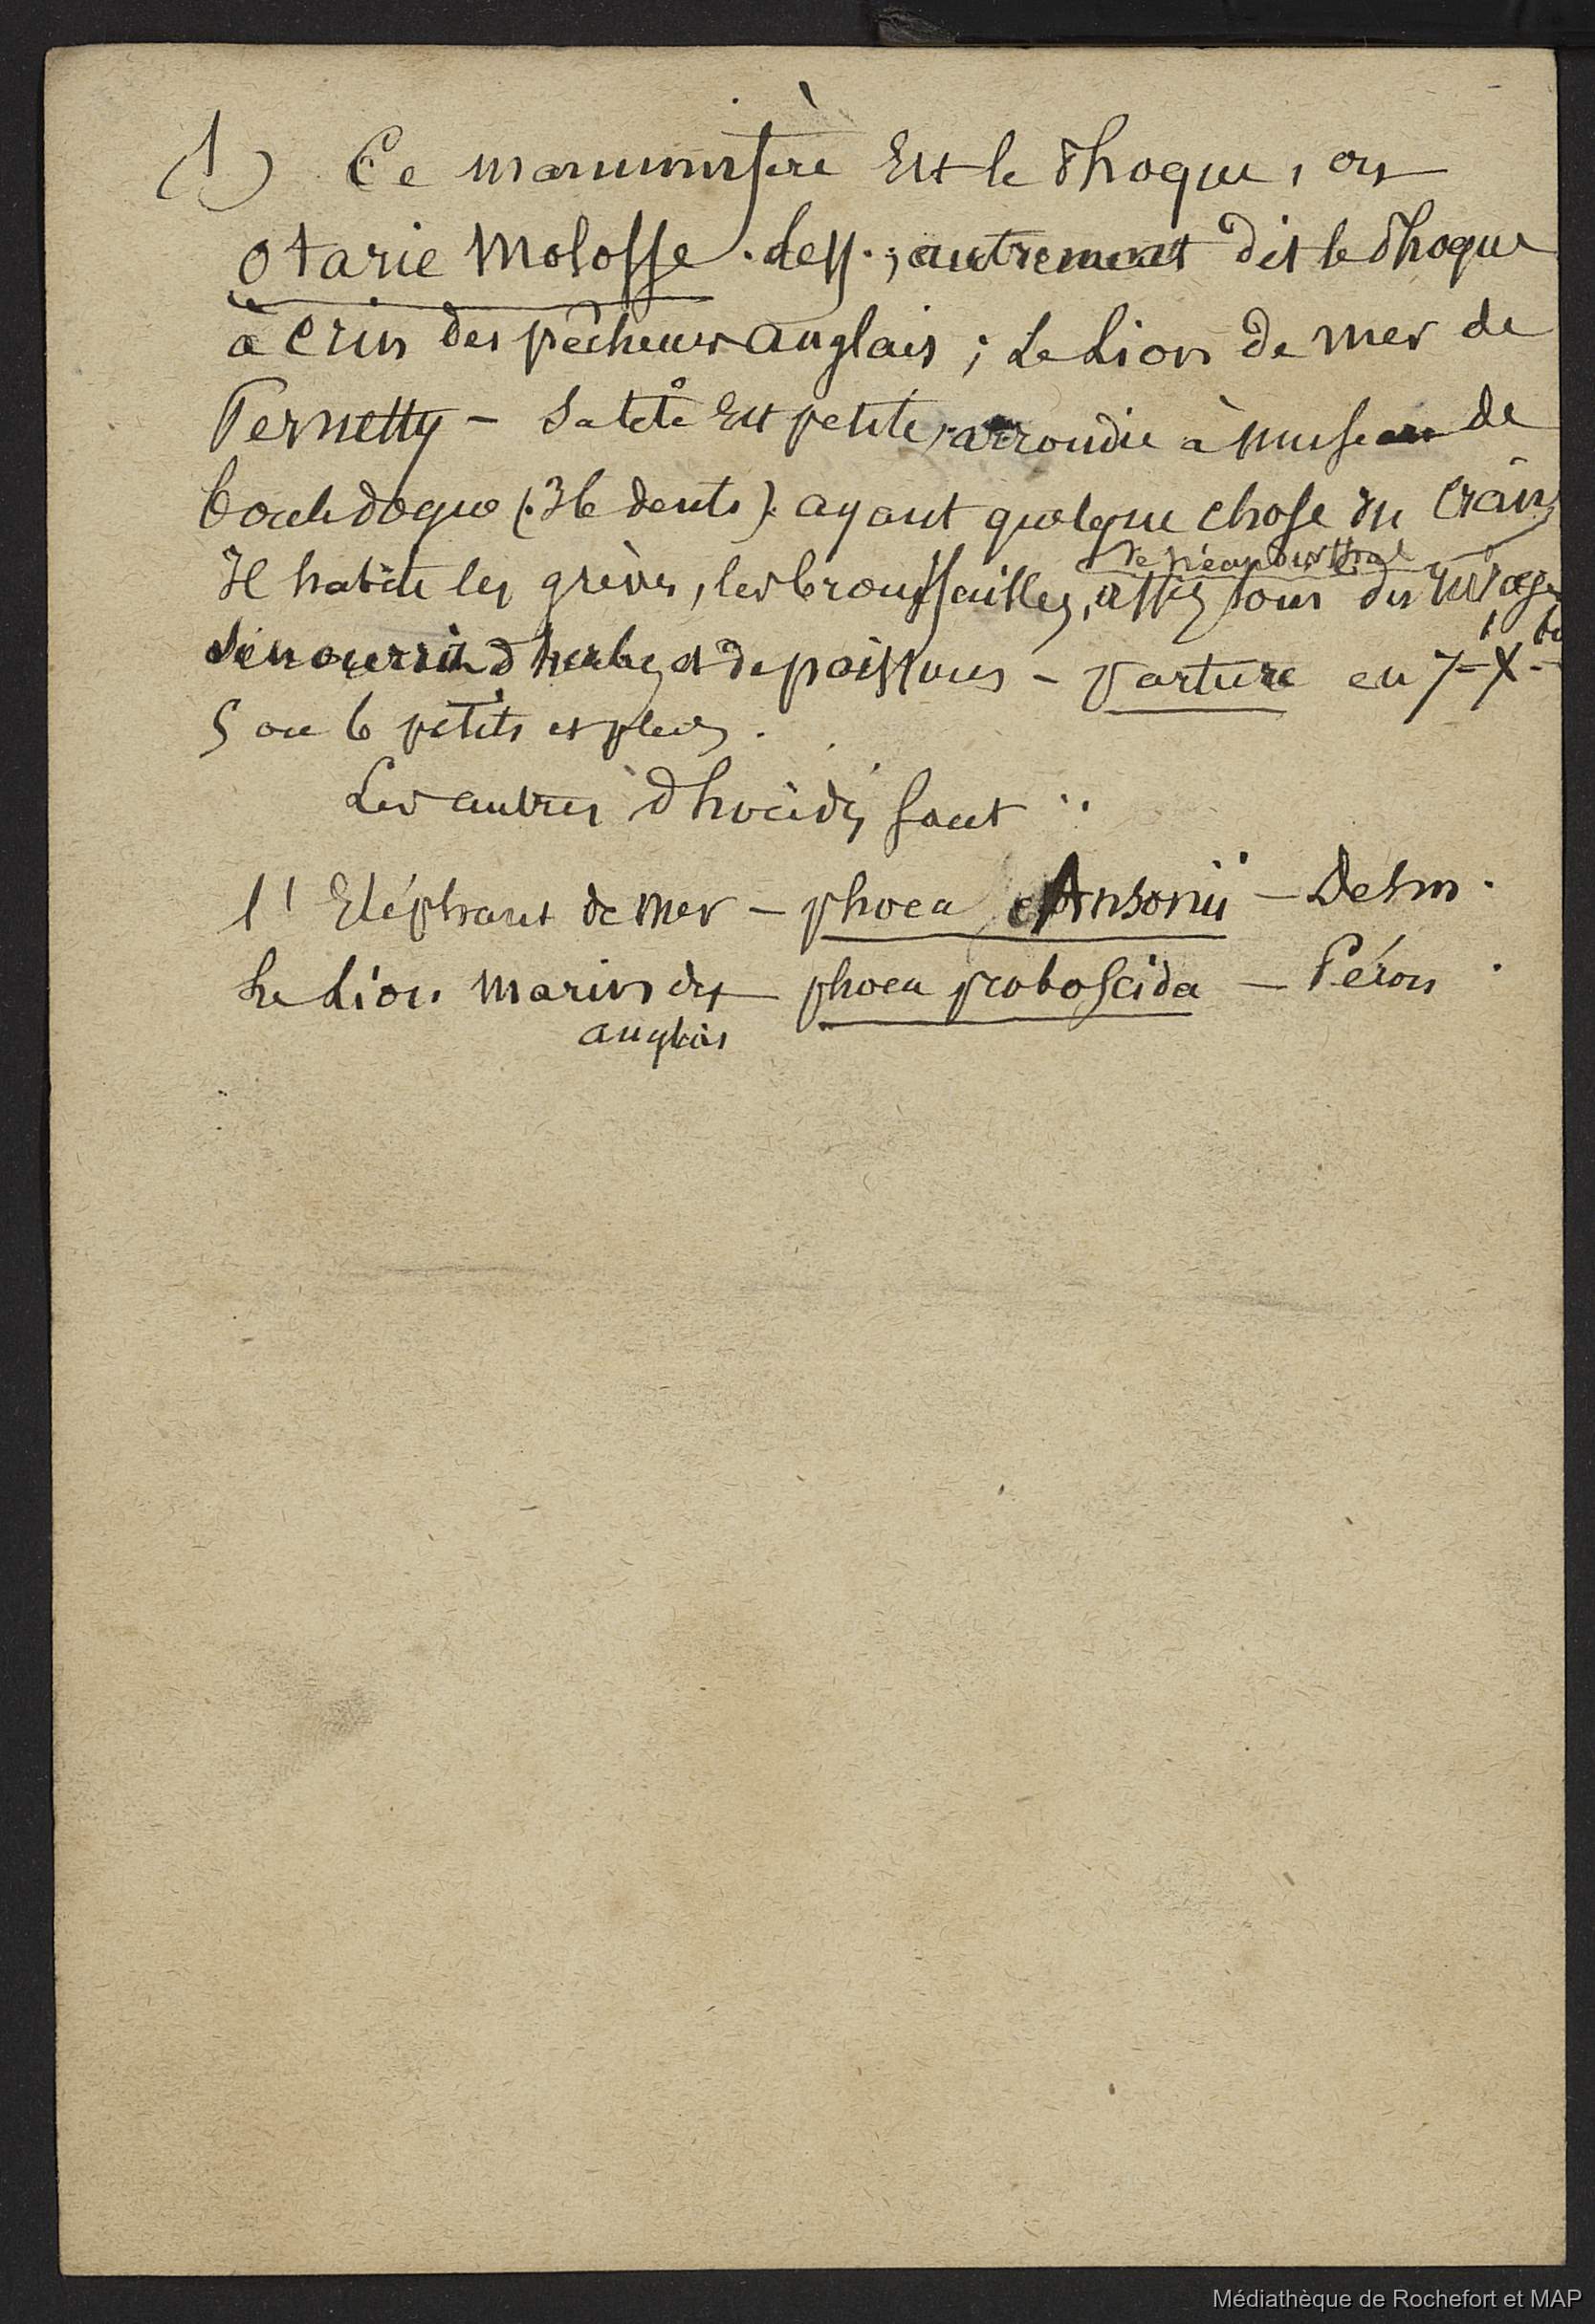 (1) Ce mammifère Est le Phoque, ou
otarie Molosse . less. ; autrement dit le Phoque
à crin des pêcheurs anglais ; Le Lion de mer de
Pernetty - Sa tête Est petite, arrondie à museau de
bouledogue (36 dents). ayant quelque chose du Crâne
de Néanderthal
Il habite les grèves, les broussailles, assez loin du rivage
se nourrit d'herbes et de poissons - Parture en 7-X-bre
5 ou 6 petits et plus.
Les autres Phocidés sont :
l'Eléphant de mer - phoca Ansonii - Desm.
Le Lion marin des - phoca proboscida - Péron.
anglais
Médiathèque de Rochefort et MAP